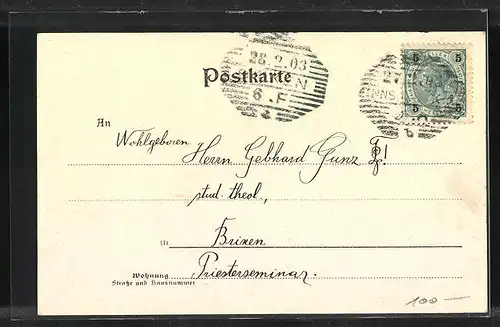 28.2.03
Postkarte
6.F
5 5
27
INNS
5 5
An
Wohlgeboren Herrn Gebhard Gunz
stud. theol.,
in Brixen
Wohnung Priesterseminar.
Straße und Hausnummer
100 —